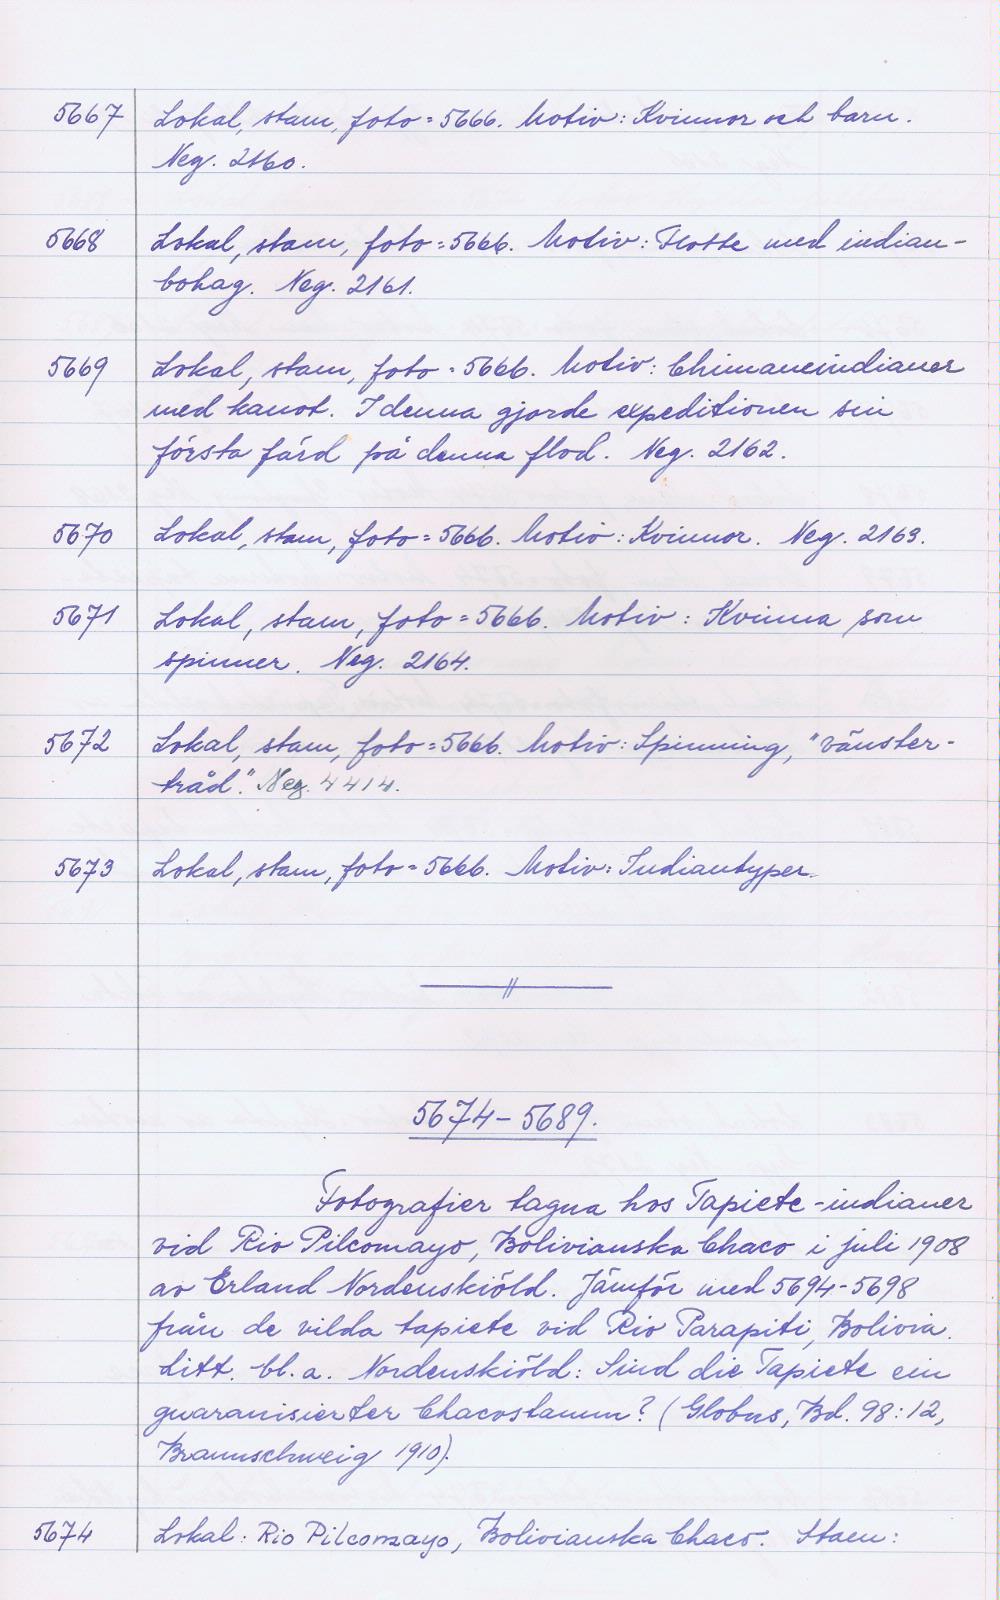 5667 Lokal, stam, foto = 5666. Motiv: Kvinnor och barn.
Neg. 2160.
5668 Lokal, stam, foto = 5666. Motiv: Flotte med indian-
bohag. Neg. 2161.
5669 Lokal, stam, foto = 5666. Motiv: Chimaneindianer
med kanot. I denna gjorde expeditionen sin
första färd på denna flod. Neg. 2162.
5670 Lokal, stam, foto = 5666. Motiv: Kvinnor. Neg. 2163.
5671 Lokal, stam, foto = 5666. Motiv: Kvinna som
spinner. Neg. 2164.
5672 Lokal, stam, foto = 5666. Motiv: Spinning, "vänster-
tråd". Neg. 4414.
5673 Lokal, stam, foto = 5666. Motiv: Indiantyper.
5674-5689.
Fotografier tagna hos Tapiete-indianer
vid Rio Pilcomayo, Bolivianska Chaco i juli 1908
av Erland Nordenskiöld. Jämför med 5694-5698
från de vilda tapiete vid Rio Parapiti, Bolivia.
Litt. bl.a. Nordenskiöld: Sind die Tapiete ein
guaranisierter Chacostamm? (Globus, Bd. 98:12,
Braunschweig 1910).
5674 Lokal: Rio Pilcomayo, Bolivianska Chaco. Stam: